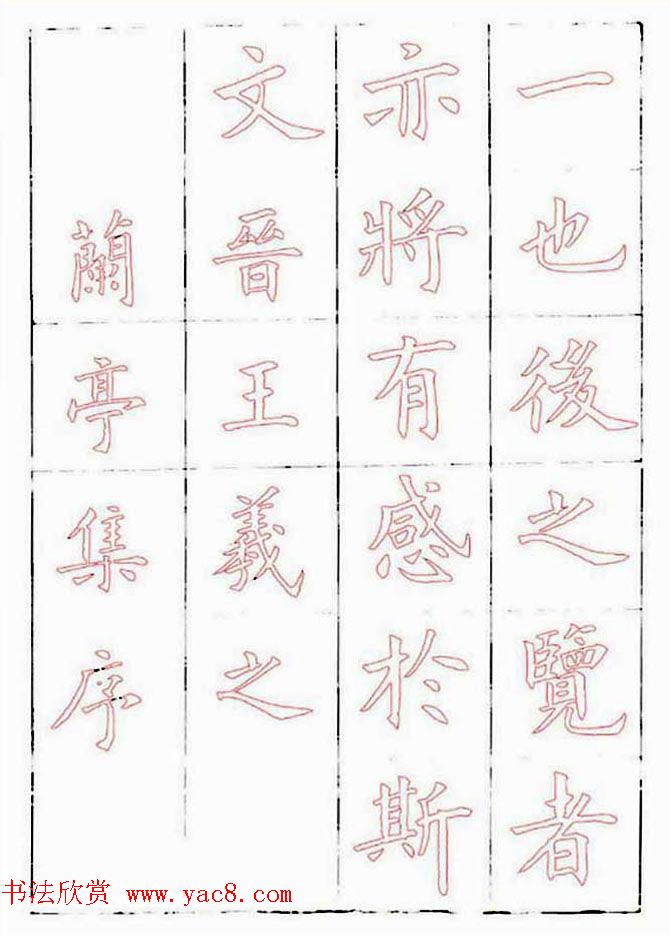 一也後之覽者
亦將有感於斯
文晉王羲之
蘭亭集序
书法欣赏 www.yac8.com